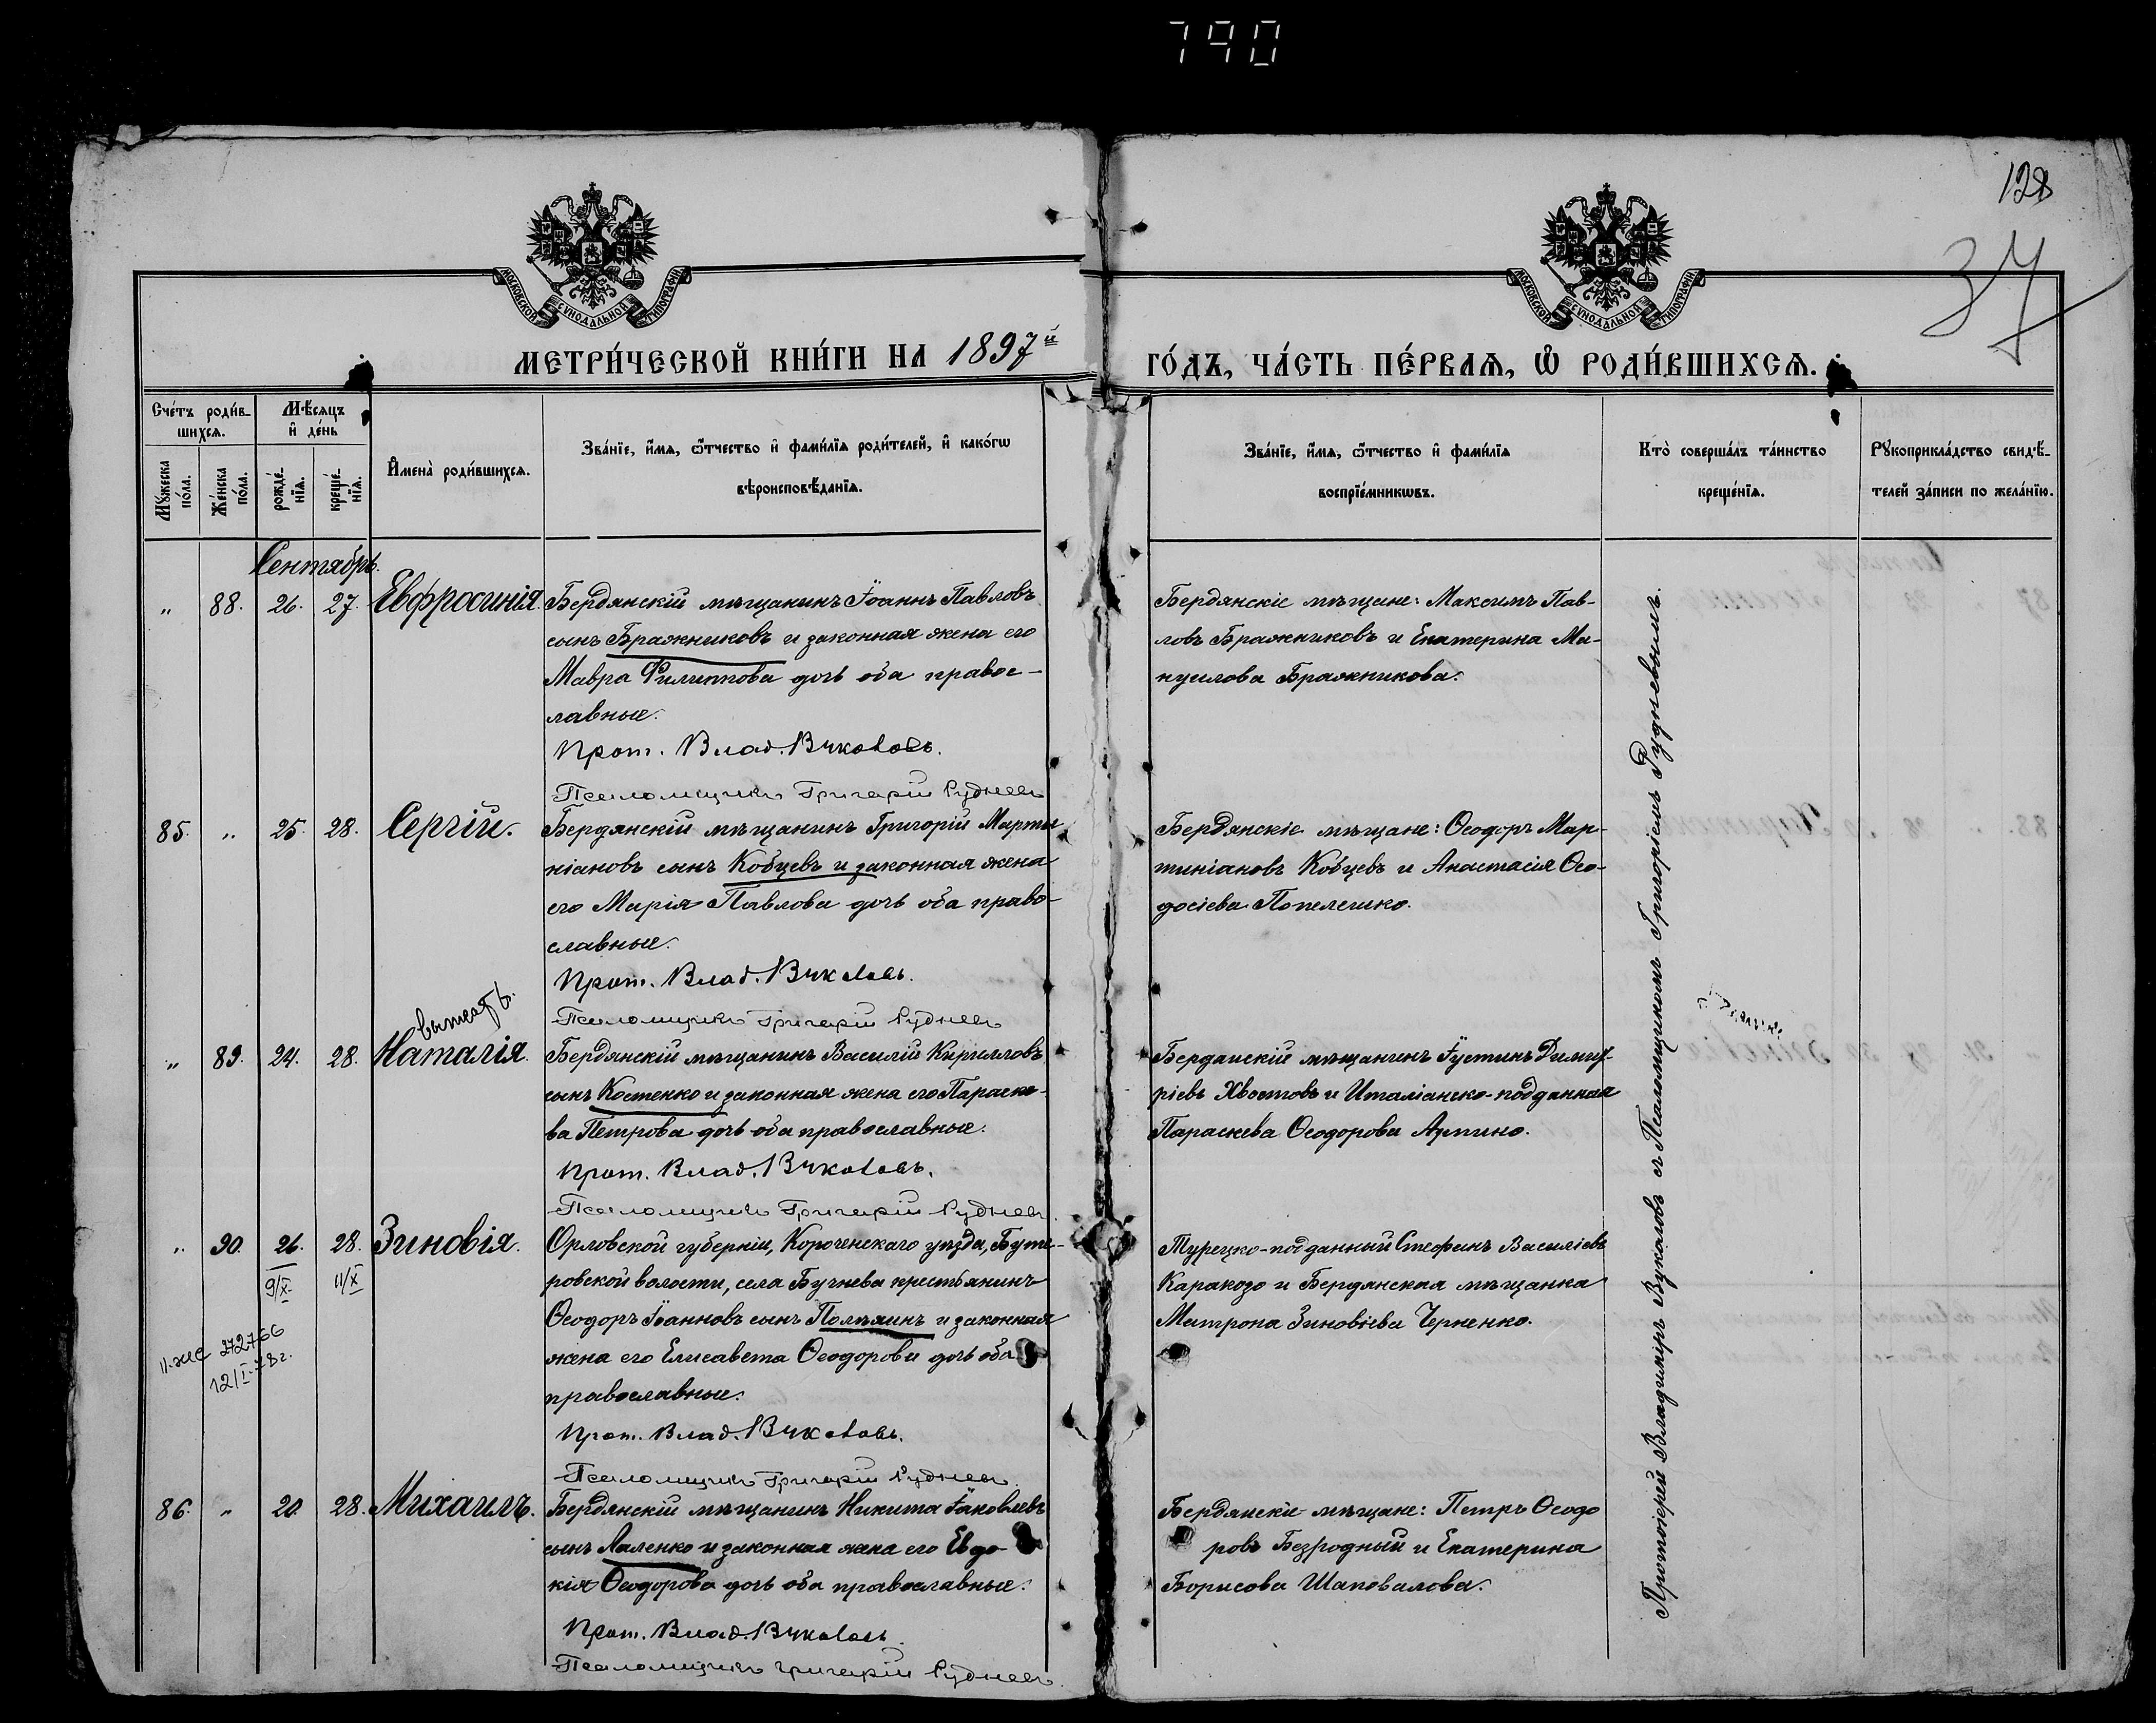 790
128
37
МОСКОВСКОЙ СѴНОДАЛЬНОЙ ТИПОГРАФІИ
МОСКОВСКОЙ СѴНОДАЛЬНОЙ ТИПОГРАФІИ
МЕТРИ́ЧЕСКОЙ КНИ́ГИ НА 1897й
ГО́ДЪ, ЧА́СТЬ ПЕ́РВАѦ, Ѡ҆ РОДИ́ВШИХСѦ.
Сче́тъ роди́в-
шихсѧ.
Мѣ́сѧцъ
и҆ де́нь
Мꙋ́жеска
по́ла.
Же́нска
по́ла.
рожде́-
нїѧ.
креще́-
нїѧ.
И҆мена̀ роди́вшихсѧ.
Зва́нїе, и҆́мѧ, ѻ҆́тчество и҆ фами́лїѧ роди́телей, и҆ како́гѡ
вѣроисповѣ́данїѧ.
Зва́нїе, и҆́мѧ, ѻ҆́тчество и҆ фами́лїѧ
воспрїе́мникѡвъ.
Кто̀ соверша́лъ та́инство
креще́нїѧ.
Рꙋкоприкла́дство свидѣ́-
телей за́писи по жела́нїю.
Сентябрь.
„ 88. 26. 27. Евфросинія.
Бердянскій мѣщанинъ Іоаннъ Павловъ
сынъ Бражниковъ и законная жена его
Мавра Филиппова дочь оба правос-
лавные.
Прот. Влад. Вуколовъ.
Псаломщикъ Григорій Рудневъ
Бердянскіе мѣщане: Максимъ Пав-
ловъ Бражниковъ и Екатерина Ма-
нуилова Бражникова.
85. „ 25. 28. Сергій.
Бердянскій мѣщанинъ Григорій Марти
ніановъ сынъ Кобцевъ и законная жена
его Марія Павлова дочь оба право-
славные.
Прот. Влад. Вуколовъ.
Псаломщикъ Григорій Рудневъ
Бердянскіе мѣщане: Ѳеодоръ Мар-
тиніановъ Кобцевъ и Анастасія Ѳео-
досіева Попелешко.
„ 89. 24. 28. Наталія.
Бердянскій мѣщанинъ Василій Кирилловъ
сынъ Костенко и законная жена его Параске-
ва Петрова дочь оба православные.
Прот. Влад. Вуколовъ.
Псаломщикъ Григорій Рудневъ
Бердянскій мѣщанинъ Іустинъ Димит-
ріевъ Хвостовъ и Италіанско-подданная
Параскева Ѳеодорова
„ 90. 26. 28. Зиновія.
9/X 11/X
12/I-78г.
Орловской губерніи,
ровской волости, села Бучнева крестьянинъ
Ѳеодоръ Іоанновъ сынъ и законная
жена его Елисавета Ѳеодорова дочь оба
православные.
Прот. Влад. Вуколовъ.
Псаломщикъ Григорій Рудневъ
Турецко-подданный Стефанъ Василіевъ
Каракозо и Бердянская мѣщанка
Матрона Зиновіева Черненко.
86. „ 20. 28. Михаилъ.
Бердянскій мѣщанинъ Никита Іаковлевъ
сынъ Лаленко и законная жена его Евдо-
кія Ѳеодорова дочь оба православные.
Прот. Влад. Вуколовъ.
Псаломщикъ Григорій Рудневъ
Бердянскіе мѣщане: Петръ Ѳеодо
ровъ Безродный и Екатерина
Борисова Шаповалова.
Протоіерей Владиміръ Вуколовъ съ Псаломщикомъ Григоріемъ Рудневымъ.